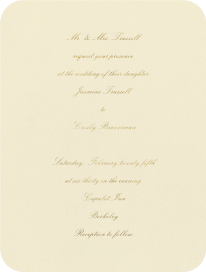 Mr. & Mrs. Trussell
request your presence
at the wedding of their daughter
Jasmine Trussell
to
Crosby
Saturday, February twenty fifth
at six thirty in the evening
Inn
Berkeley
Reception to follow